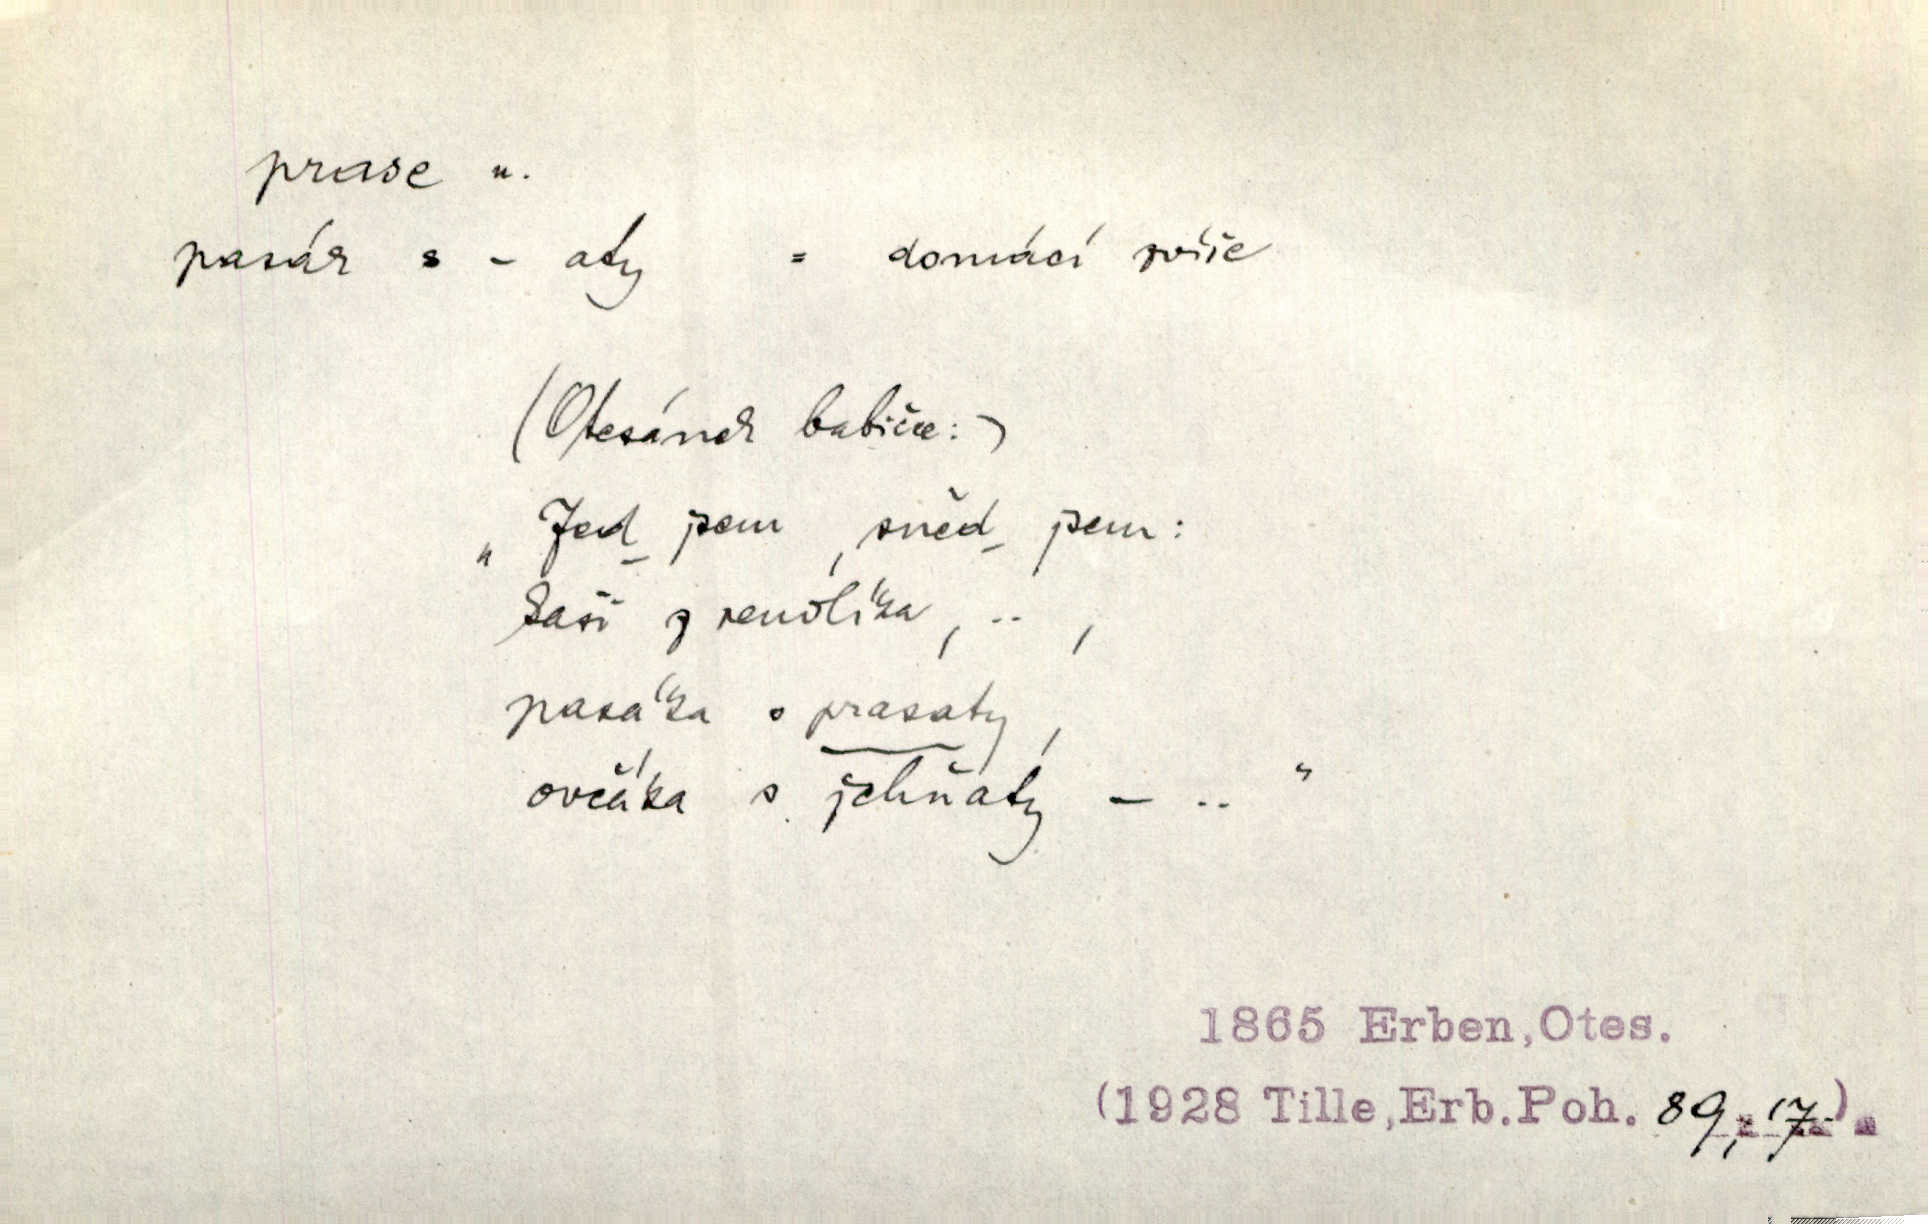 prase n.
pasák s - aty = domácí zvíře
(Otesánek babičce:)
„Jed jsem, sněd jsem:
kaši z rendlíka, .. ,
pasáka s prasaty,
ovčáka s jehňaty - .. "
1865 Erben,Otes.
(1928 Tille,Erb.Poh. 89, 17).